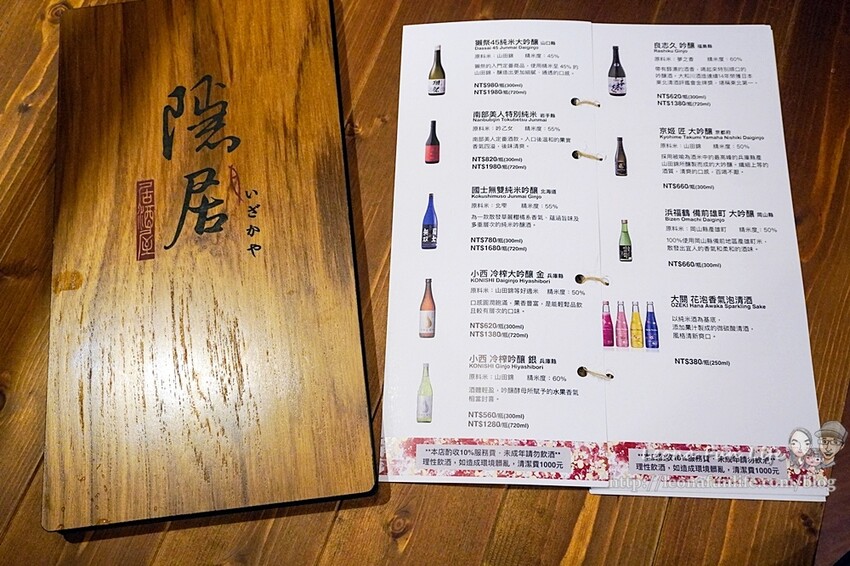 隱居
いざかや
居酒屋
獺祭45純米大吟釀 山口縣
Dassai 45 Junmai Daiginjo
原料米：山田錦 精米度：45%
獺祭的入門定番商品，使用精米至 45% 的
山田錦，釀造出更加細膩、通透的口感。
NT$980/瓶(300ml)
NT$1980/瓶(720ml)
南部美人特別純米 岩手縣
Nanbubijin Tokubetsu Junmai
原料米：吟乙女 精米度：55%
南部美人定番酒款，入口後溫和的果實
香氣四溢，後味清爽。
NT$820/瓶(300ml)
NT$1980/瓶(720ml)
國士無雙純米吟釀 北海道
Kokushimuso Junmai Ginjo
原料米：北雫 精米度：55%
為一款散發草麗柑橘系香氣，蘊涵旨味及
多重層次的純米吟釀酒。
NT$780/瓶(300ml)
NT$1680/瓶(720ml)
小西 冷榨大吟釀 金 兵庫縣
KONISHI Daiginjo Hiyashibori
原料米：山田錦等好適米 精米度：50%
口感圓潤飽滿，果香豐富，是能輕鬆品飲
且較有層次的口味。
NT$620/瓶(300ml)
NT$1380/瓶(720ml)
小西 冷榨吟釀 銀 兵庫縣
KONISHI Ginjo Hiyashibori
原料米：山田錦 精米度：60%
酒體輕盈，吟釀酵母所賦予的水果香氣
相當討喜。
NT$560/瓶(300ml)
NT$1280/瓶(720ml)
**本店酌收10%服務費．未成年請勿飲酒**
理性飲酒，如造成環境髒亂，清潔費1000元
良志久 吟釀 福島縣
Rashiku Ginjo
原料米：夢之香 精米度：60%
NT$620/瓶(300ml)
NT$1380/瓶(720ml)
京姬 匠 大吟釀 京都府
Kyohime Takumi Yamaha Nishiki Daiginjo
原料米：山田錦 精米度：50%
採用被喻為酒米中的最高峰的兵庫縣產
山田錦所釀製而成的大吟釀。纖細上等的
酒質，清爽的口感，百喝不厭。
NT$660/瓶(300ml)
浜福鶴 備前雄町 大吟釀 岡山縣
Bizen Omachi Daiginjo
原料米：岡山縣產雄町 精米度：50%
100%使用岡山縣備前地區產雄町米，
散發出宜人的香氣和柔和的酒味。
NT$660/瓶(300ml)
大關 花泡香氣泡清酒
OZEKI Hana Awaka Sparkling Sake
以純米酒為基底，
添加果汁製成的微碳酸清酒，
風格清新爽口。
NT$380/瓶(250ml)
**本店酌收10%服務費．未成年請勿飲酒**
理性飲酒，如造成環境髒亂，清潔費1000元